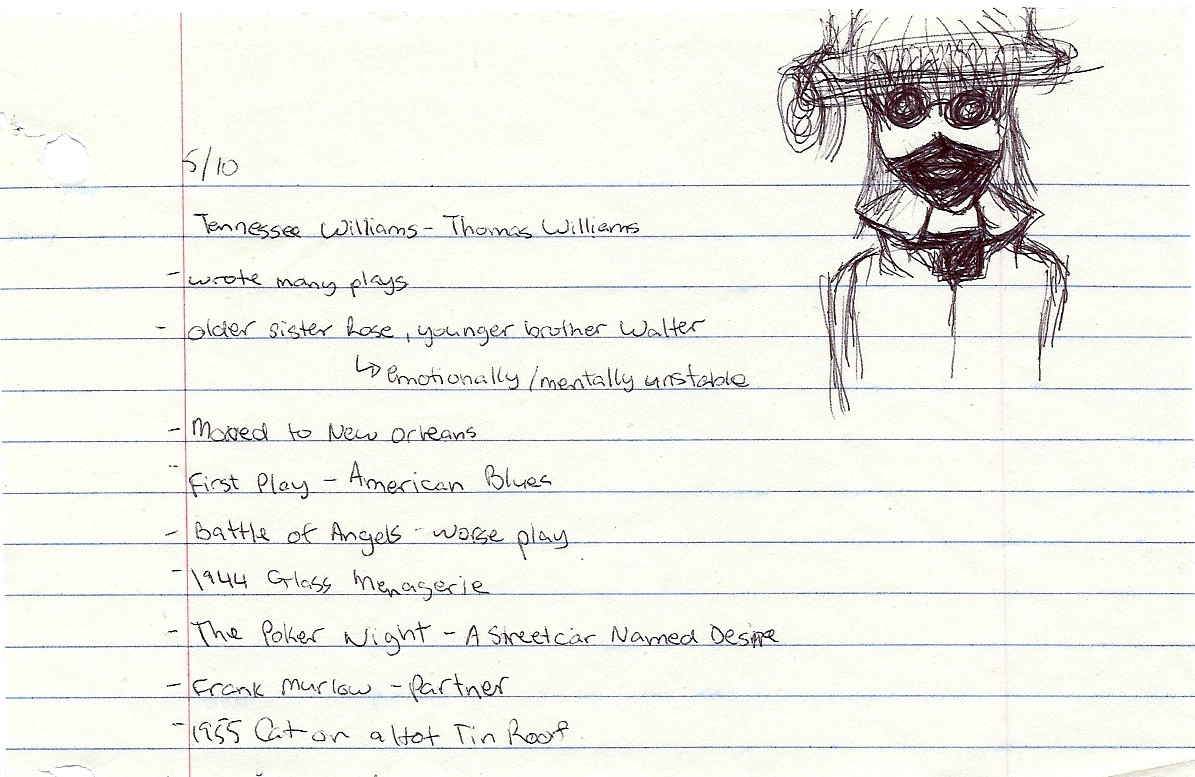 5/10
Tennessee Williams - Thomas Williams
- wrote many plays
- older sister Rose, younger brother Walter
↳ emotionally/mentally unstable
- Moved to New Orleans
- First Play - American Blues
- Battle of Angels - worse play
- 1944 Glass Menagerie
- The Poker Night - A Streetcar Named Desire
- Frank Murlow - partner
- 1955 Cat on a Hot Tin Roof